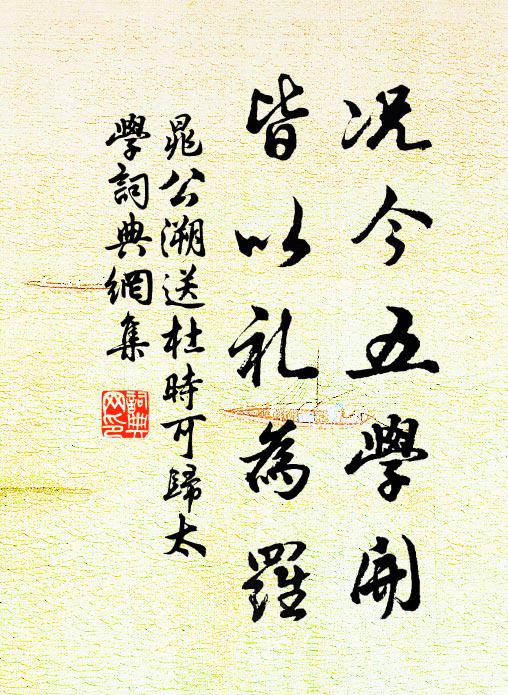 况今五學開
皆以礼為羅
晁公溯送杜時可歸太
學詞典網集
詞典
网印